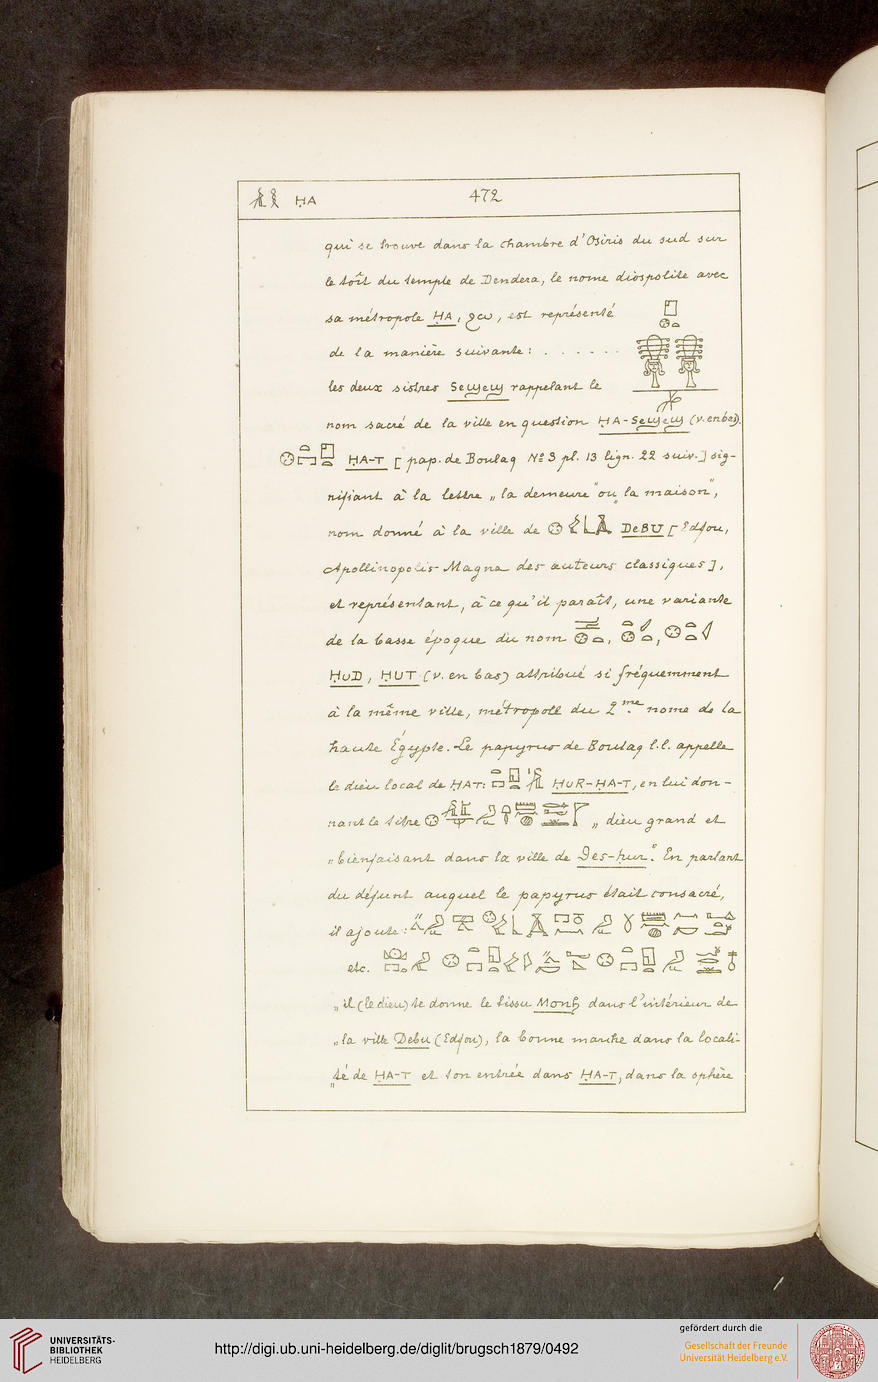 ḤA 472
qui se trouve dans la chambre d'Osiris du sud sur
le toît du temple de Dendera, le nome diospolite avec
sa métropole ḤA, ϩⲱ, est représenté
de la manière suivante : . . . . . .
les deux sistres Seϣeϣ rappelant le
nom sacré de la ville en question ḤA-Seϣeϣ (v. en bas).
ḤA-T [pap. de Boulaq Nº 3 pl. 13 lign. 22 suiv.] sig-
nifiant à la lettre „la demeure" ou „la maison",
nom donné à la ville de DeBU [Edfou,
Apollinopolis Magna des auteurs classiques],
et représentant, à ce qu'il paraît, une variante
de la basse époque du nom
ḤUD, ḤUT (v. en bas) attribué si fréquemment
à la même ville, métropole du 2me nome de la
haute Égypte. Le papyrus de Boulaq l.l. appelle
le dieu local de ḤAT: ḤUR-ḤA-T, en lui don-
nant le titre „dieu grand et
„bienfaisant dans la ville de Des-ḥur". En parlant
du défunt auquel le papyrus était consacré,
il ajoute :
etc.
„il (le dieu) te donne le tissu Monḫ dans l'intérieur de
„la ville Debu (Edfou), la bonne marche dans la locali-
„té de ḤA-T et ton entrée dans ḤA-T, dans la sphère
UNIVERSITÄTS-
BIBLIOTHEK
HEIDELBERG
http://digi.ub.uni-heidelberg.de/diglit/brugsch1879/0492
gefördert durch die
Gesellschaft der Freunde
Universität Heidelberg e.V.